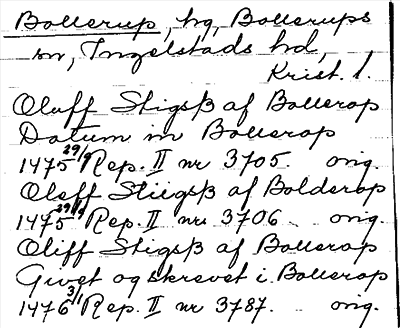 Bollerup, hg, Bollerups
sn, Ingelstads hd,
Krist. l.
Oluff Stigsß af Bollerop
Datum in Bollerop
1475 29/9 Rep. II nr 3705. orig.
Oleff Stiigsß af Bolderop
1475 29/9 Rep. II nr 3706. orig.
Oliff Stigsß af Bollerop
Givet og skrevet i Bollerop
1476 3/1 Rep. II nr 3787. orig.